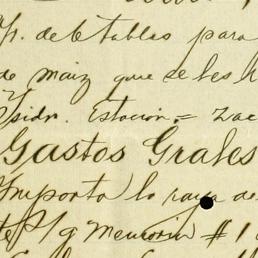 p. de 6 tablas para
de maiz que se les h
Ysidr. Estación = Zac
Gastos Grales
Importa la raya de
te P/ g Memoria # 1